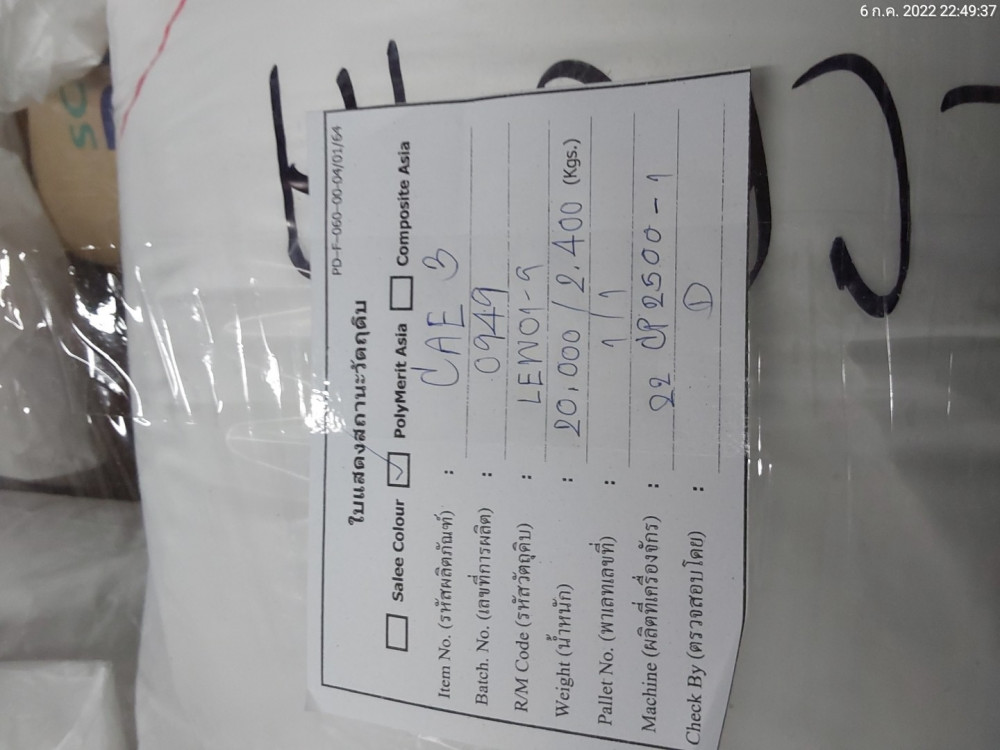 6 ก.ค. 2022 22:49:37
PD-F-060-00-04/01/64
ใบแสดงสถานะวัตถุดิบ
Salee Colour PolyMerit Asia Composite Asia
Item No. (รหัสผลิตภัณฑ์) : CAE 3
Batch. No. (เลขที่การผลิต) : 0949
R/M Code (รหัสวัตถุดิบ) : LEW01-9
Weight (น้ำหนัก) : 20,000 / 2.400 (Kgs.)
Pallet No. (พาเลทเลขที่) : 1 / 1
Machine (ผลิตที่เครื่องจักร) : 22 CP 2500 - 1
Check By (ตรวจสอบโดย) :